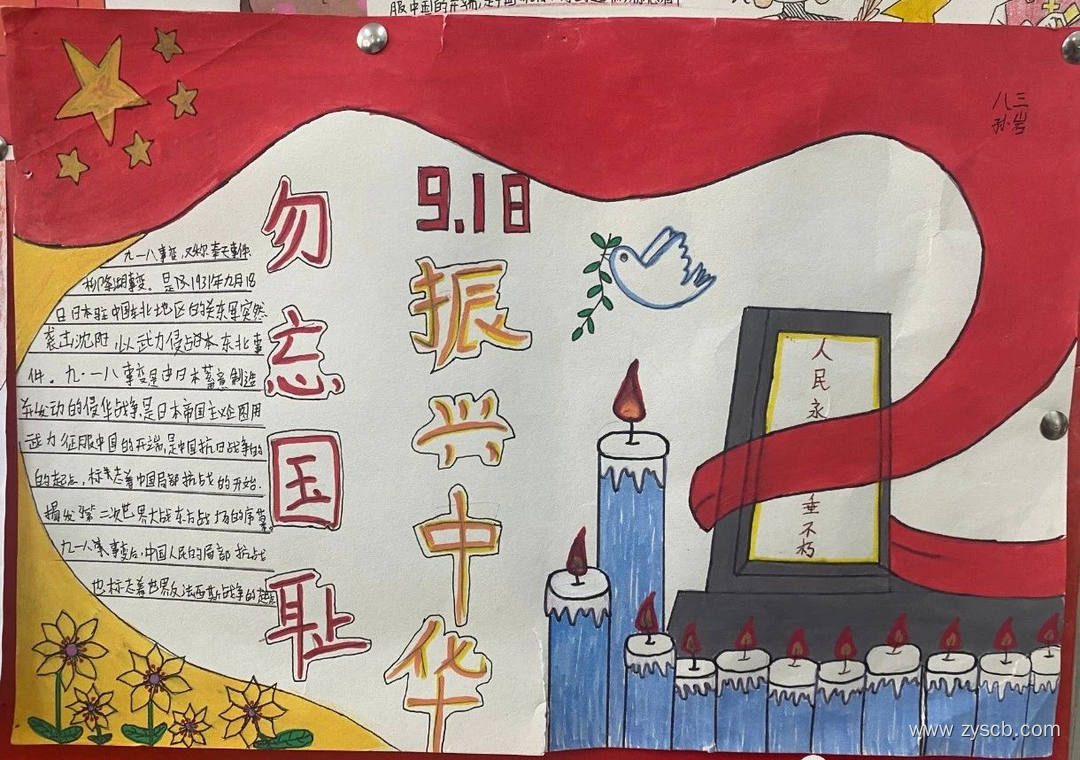 八三
孙岩
9.18
勿忘国耻
振兴中华
九一八事变,又称奉天事件
柳条湖事变。是区1931年九月18
日日本驻中国东北地区的关东军突然
袭击沈阳 以武力侵占日本东北事
件。九·一八事变是由日本蓄意制造
并发动的侵华战争,是日本帝国主义企图用
武力征服中国的开端,是中国抗日战争的
的起点,标志着中国局部抗战的开始.
揭发 二次世界大战东方战场的序幕。
九一八事变后,中国人民的局部抗战
也标志着世界反法西斯战争的起
人民永
垂不朽
www.zyscb.com